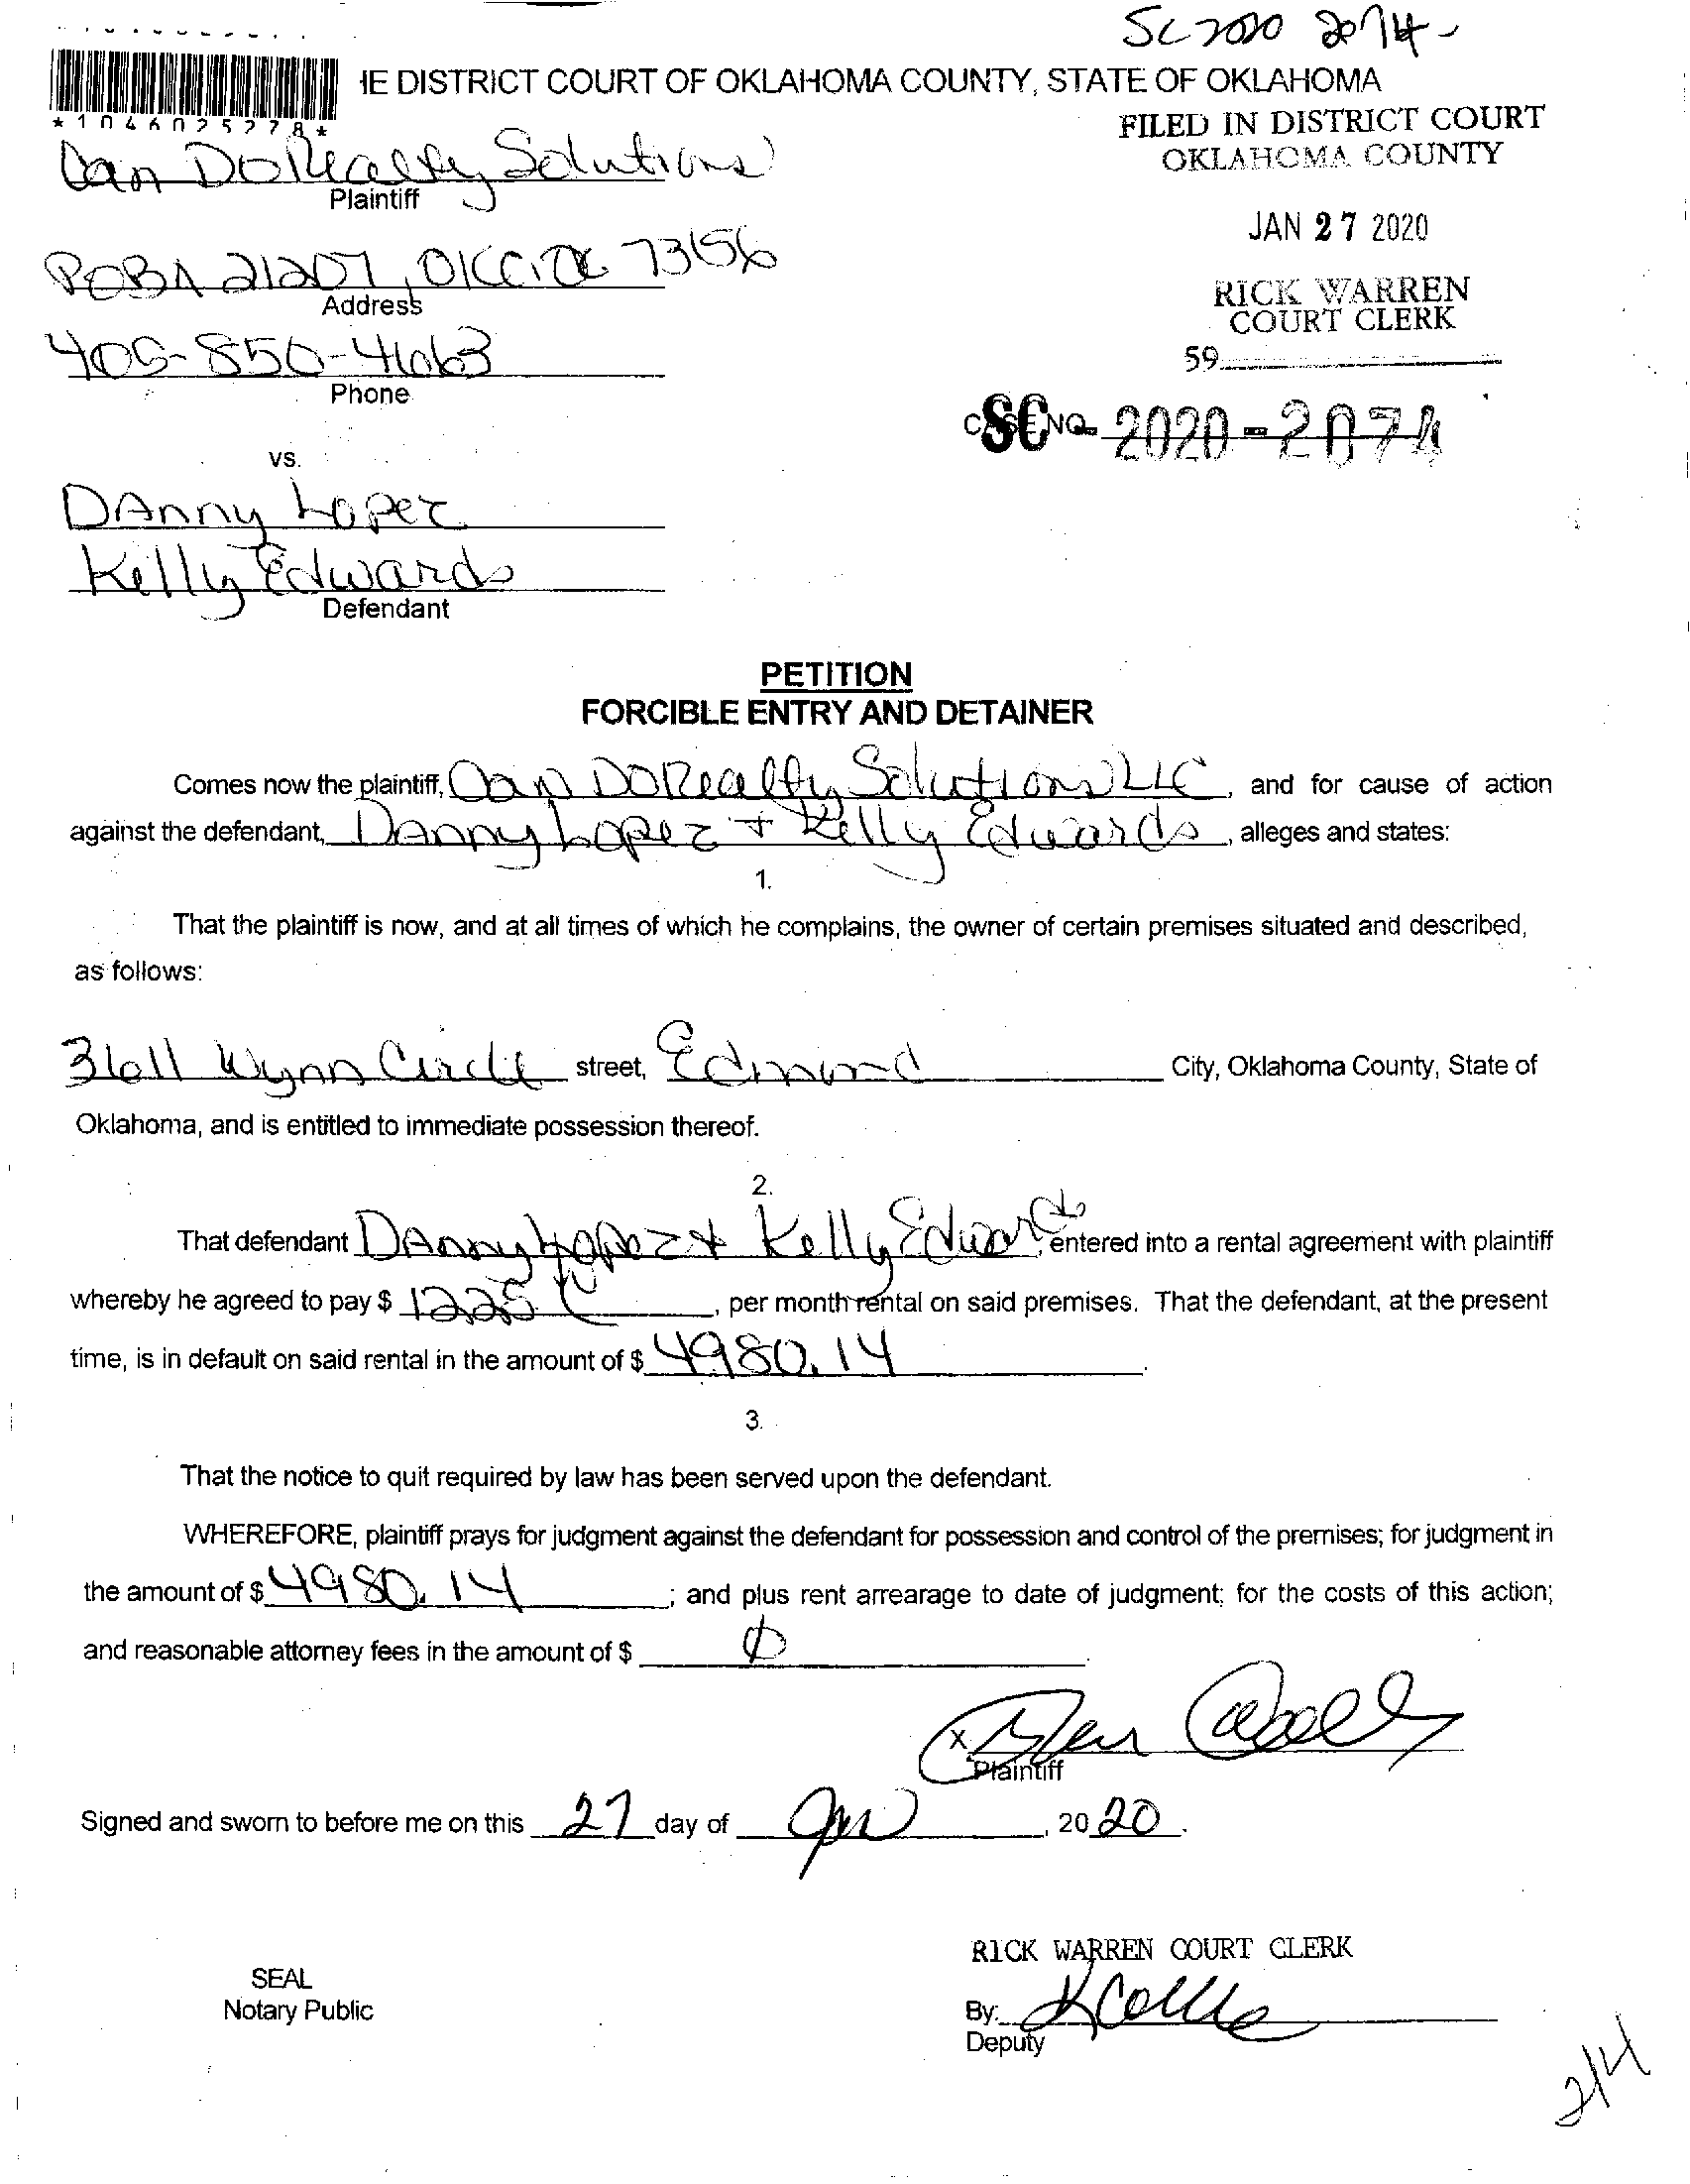 SC 2020 2074
IE DISTRICT COURT OF OKLAHOMA COUNTY, STATE OF OKLAHOMA
*1046025278*
FILED IN DISTRICT COURT
OKLAHOMA COUNTY
Can Do Realty Solutions
Plaintiff
JAN 27 2020
POBX 21207, OKC, OK 73156
Address
RICK WARREN
COURT CLERK
405-850-4663
59
Phone
CASE NO. SC-2020-2074
vs.
DAnny Lopez
Kelly Edwards
Defendant
PETITION
FORCIBLE ENTRY AND DETAINER
Comes now the plaintiff, Can DO Realty Solutions LLC, and for cause of action
against the defendant, Danny Lopez + Kelly Edwards, alleges and states:
1.
That the plaintiff is now, and at all times of which he complains, the owner of certain premises situated and described,
as follows:
3611 Wynn Circle street, Edmond City, Oklahoma County, State of
Oklahoma, and is entitled to immediate possession thereof.
2.
That defendant DAnny Lopez + Kelly Edwards entered into a rental agreement with plaintiff
whereby he agreed to pay $ 1225, per month rental on said premises. That the defendant, at the present
time, is in default on said rental in the amount of $ 4980.14.
3.
That the notice to quit required by law has been served upon the defendant.
WHEREFORE, plaintiff prays for judgment against the defendant for possession and control of the premises; for judgment in
the amount of $ 4980.14; and plus rent arrearage to date of judgment; for the costs of this action;
and reasonable attorney fees in the amount of $ 0.
x
Plaintiff
Signed and sworn to before me on this 27 day of Jan, 2020.
RICK WARREN COURT CLERK
SEAL
Notary Public
By:
Deputy
2/4